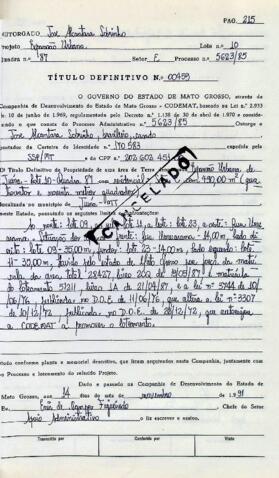 PAG. 215
OUTORGADO José Alcantara Sobrinho
Projeto Expansão Urbana Lote n.o 10
Quadra n.o 87 Setor E Processo n.o 5623/85
TÍTULO DEFINITIVO N.o 00459
O GOVERNO DO ESTADO DE MATO GROSSO, através da
Companhia de Desenvolvimento do Estado de Mato Grosso - CODEMAT, baseado na Lei n.o 2.933
de 10 de junho de 1969, regulamentada pelo Decreto n.o 1.138 de 30 de abril de 1970 e considerando
o que consta do Processo Administrativo n.o 5623/85 Outorga a
José Alcantara Sobrinho, brasileiro,
portador da Carteira de Identidade n.o 170 583 expedida pela
SSP/MT e do CPF n.o 202 602 451
O Título Definitivo de Propriedade de uma área de Terra Expansão Urbana de
Juína - lote 10 - Quadra 87 com 490,00 m² (quatrocentos
e noventa metros quadrados)
localizada no município de Juína - MT
neste Estado, passando os seguintes limites
CANCELADO
Ao norte: lote 09 lote 11, a leste: lote 23, a oeste: Rua
14,00 m, lado
lote 09 - 35,00 m, fundos: lote 23 - 14,00 m, lado esquerdo: lote
11 - 35,00 m. Havido pelo Estado de Mato Grosso
da área total 28427, livro 2CQ 15/05/87 e matrícula
do loteamento 51211 livro 1A de 21/04/87, e a lei nº 5744 de 10/
06/76 publicada no D.O.E 11/06/76, que altera a lei nº 3307
de 10/12/72 publicada no D.O.E de 28/12/72, que autoriza
a CODEMAT a promover o loteamento.
tudo conforme planta e memorial descritivo, que ficam arquivados nesta Companhia, juntamente com
o Processo e loteamento do referido Projeto.
Dado e passado na Companhia de Desenvolvimento do Estado de
Mato Grosso, aos 14 dias do mês de de 1991
Eu, Figueiredo Chefe do Setor
Apoio Administrativo o fiz escrever e assino.
Transcrito por
Conferido por
Visto